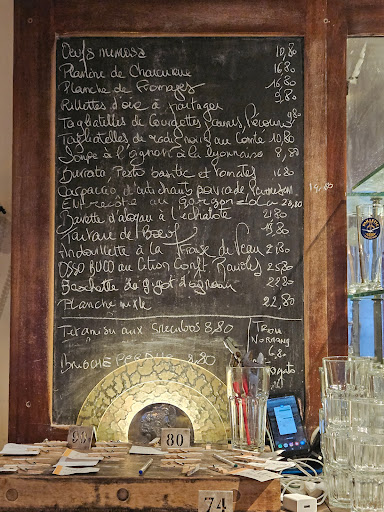 Oeufs mimosa 10,80
Planche de Charcuterie 16,80
Planche de Fromages 16,80
Rillettes d'oie à partager 9,80
Tagliatelles de Courgettes 9,80
Tagliatelles de radis noir au Comté 10,80
Soupe à l'oignon à la lyonnaise 8,80
Burrata Pesto basilic et tomates 16,80
Carpaccio d'artichauts
Entrecôte au gorgonzola 28,80
Bavette d'aloyau à l'échalote 21,80
Tartare de Boeuf 19,80
Andouillette à la Fraise de Veau 21,80
Osso Buco au Citron Confit 25,80
de gigot d'agneau 22,80
Planche mixte 22,80
Tiramisu aux Speculoos 8,80
Trou
Normand
6,80
Brioche Perdue 8,80
99
80
74